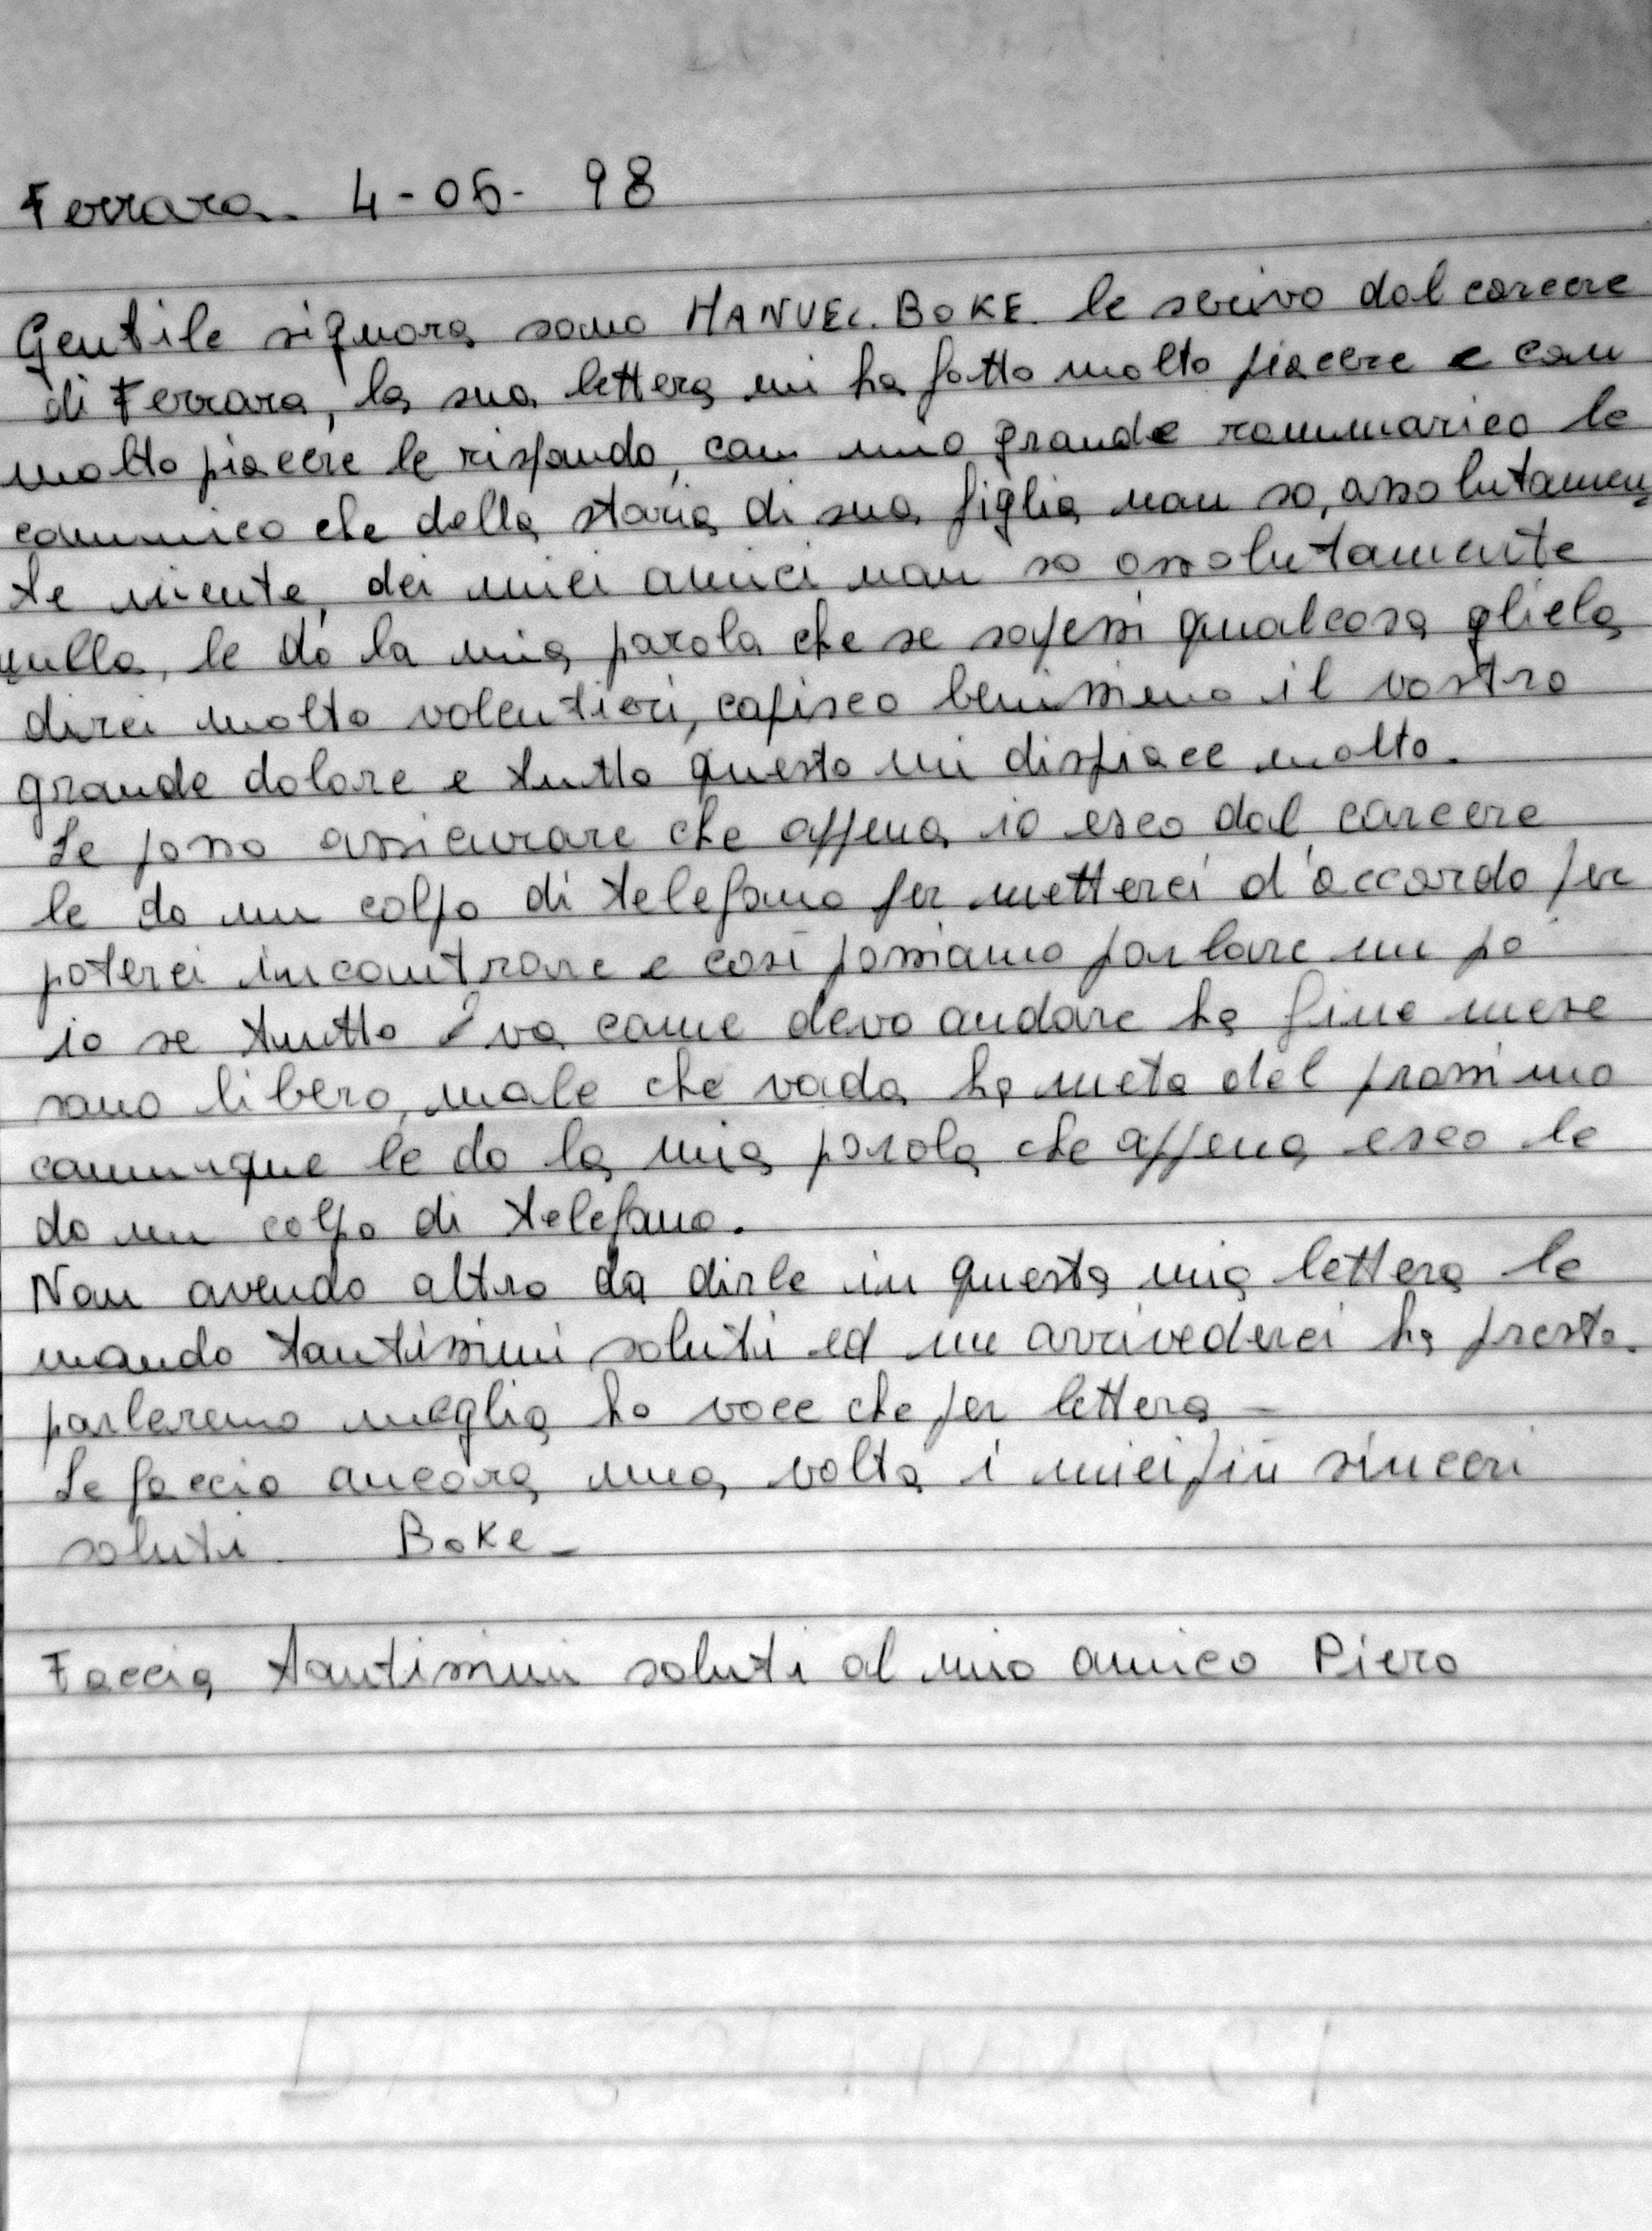 Ferrara. 4-06- 98
Gentile signora sono MANUEL. BOKE. le scrivo dal carcere
di Ferrara, la sua lettera mi ha fatto molto piacere e con
molto piacere le rispondo, con mio grande rammarico le
comunico che della storia di sua figlia non so, assolutamen
te niente, dei miei amici non so assolutamente
nulla, le dò la mia parola che se sapessi qualcosa gliela
direi molto volentieri, capisco benissimo il vostro
grande dolore e tutto questo mi dispiace molto.
Le posso assicurare che appena io esco dal carcere
le do un colpo di telefono per metterci d'accordo per
poterci incontrare e così possiamo parlare un po'
io se tutto va come devo andare ha fine mese
sono libero, male che vada ha metà del prossimo
comunque le do la mia parola che appena esco le
do un colpo di telefono.
Non avendo altro da dirle in questa mia lettera le
mando tantissimi saluti ed un arrivederci ha presto.
parleremo meglio ha voce che per lettera -
Le faccio ancora una volta i miei più sinceri
saluti. Boke -
Faccia tantissimi saluti al mio amico Piero